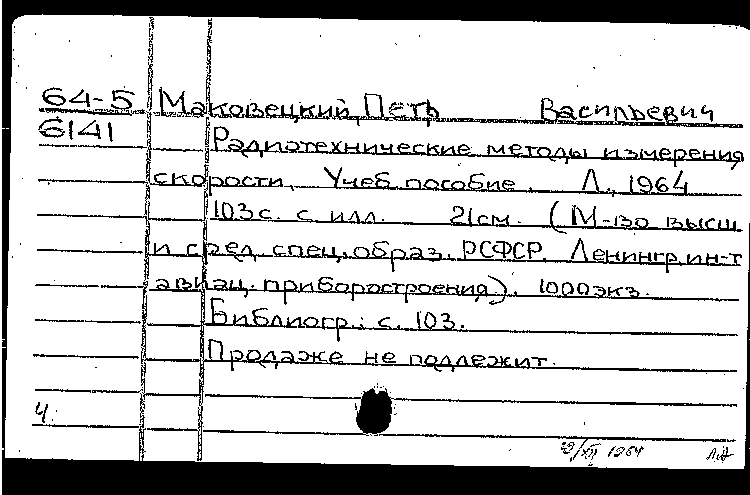 64-5 Маковецкий, Петр Васильевич
6141 Радиотехнические методы измерения
скорости. Учеб. пособие. Л., 1964
103 с. с илл. 21 см. (М-во высш.
и сред. спец. образ. РСФСР. Ленингр. ин-т
авиац. приборостроения). 1000 экз.
Библиогр.: с. 103.
Продаже не подлежит.
4.
1964